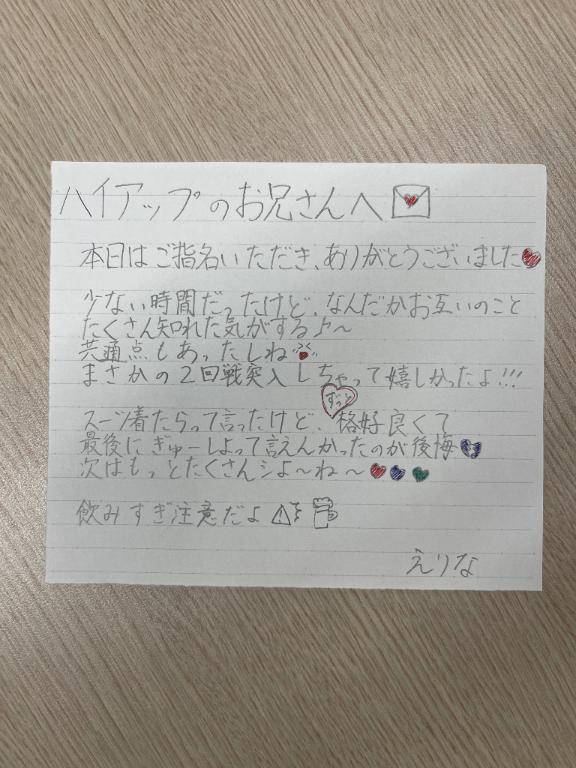 ハイアップのお兄さんへ
本日はご指名いただき、ありがとうございました
少ない時間だったけど、なんだかお互いのこと
たくさん知れた気がするよ〜
共通点もあったしね
まさかの2回戦突入しちゃって嬉しかったよ!!!
ずっと
スーツ着たらって言ったけど、格好良くて
最後にぎゅーしよって言えんかったのが後悔
次はもっとたくさんシよ〜ね〜
飲みすぎ注意だよ
えりな